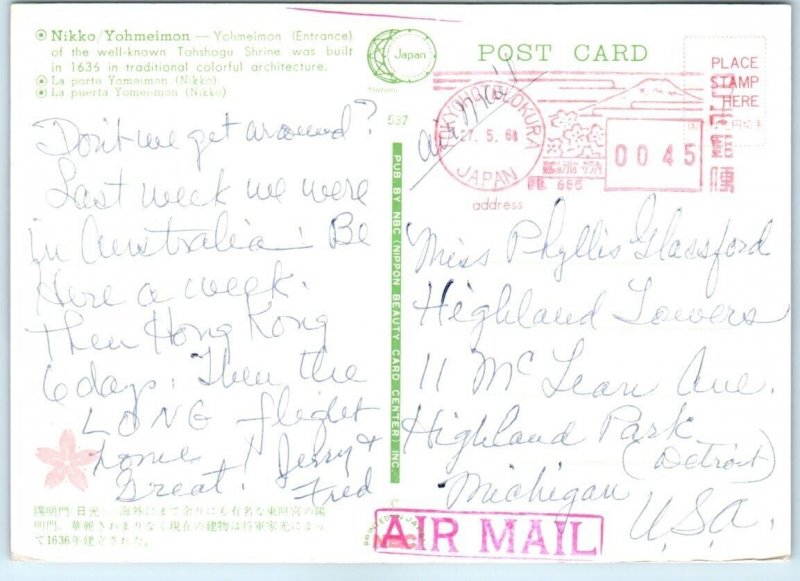 Nikko/Yohmeimon — Yohmeimon (Entrance)
of the well-known Tohshogu Shrine was built
in 1636 in traditional colorful architecture.
La porto Yomeimon (Nikko)
La puerta Yomeimon (Nikko)
Japan
POST CARD
PLACE
STAMP
HERE
air mail
27. 5. 68
JAPAN
0045
665
537
address
Don't we get around?
Last week we were
in Australia. Be
Here a week.
Then Hong Kong
6 days. Then the
LONG flight
home! Jerry &
Great! Fred
PUB BY NBC (NIPPON BEAUTY CARD CENTER) INC.
Miss Phyllis Glassford
Highland Towers
11 McLean Ave.
Highland Park
(Detroit)
Michigan
U.S.A.
陽明門 日光—海外にまで余りにも有名な東照宮の陽
明門。華麗きわまりなく現在の建物は将軍家光によっ
て1636年建立された。
PRINTED IN JAPAN
NBC
AIR MAIL